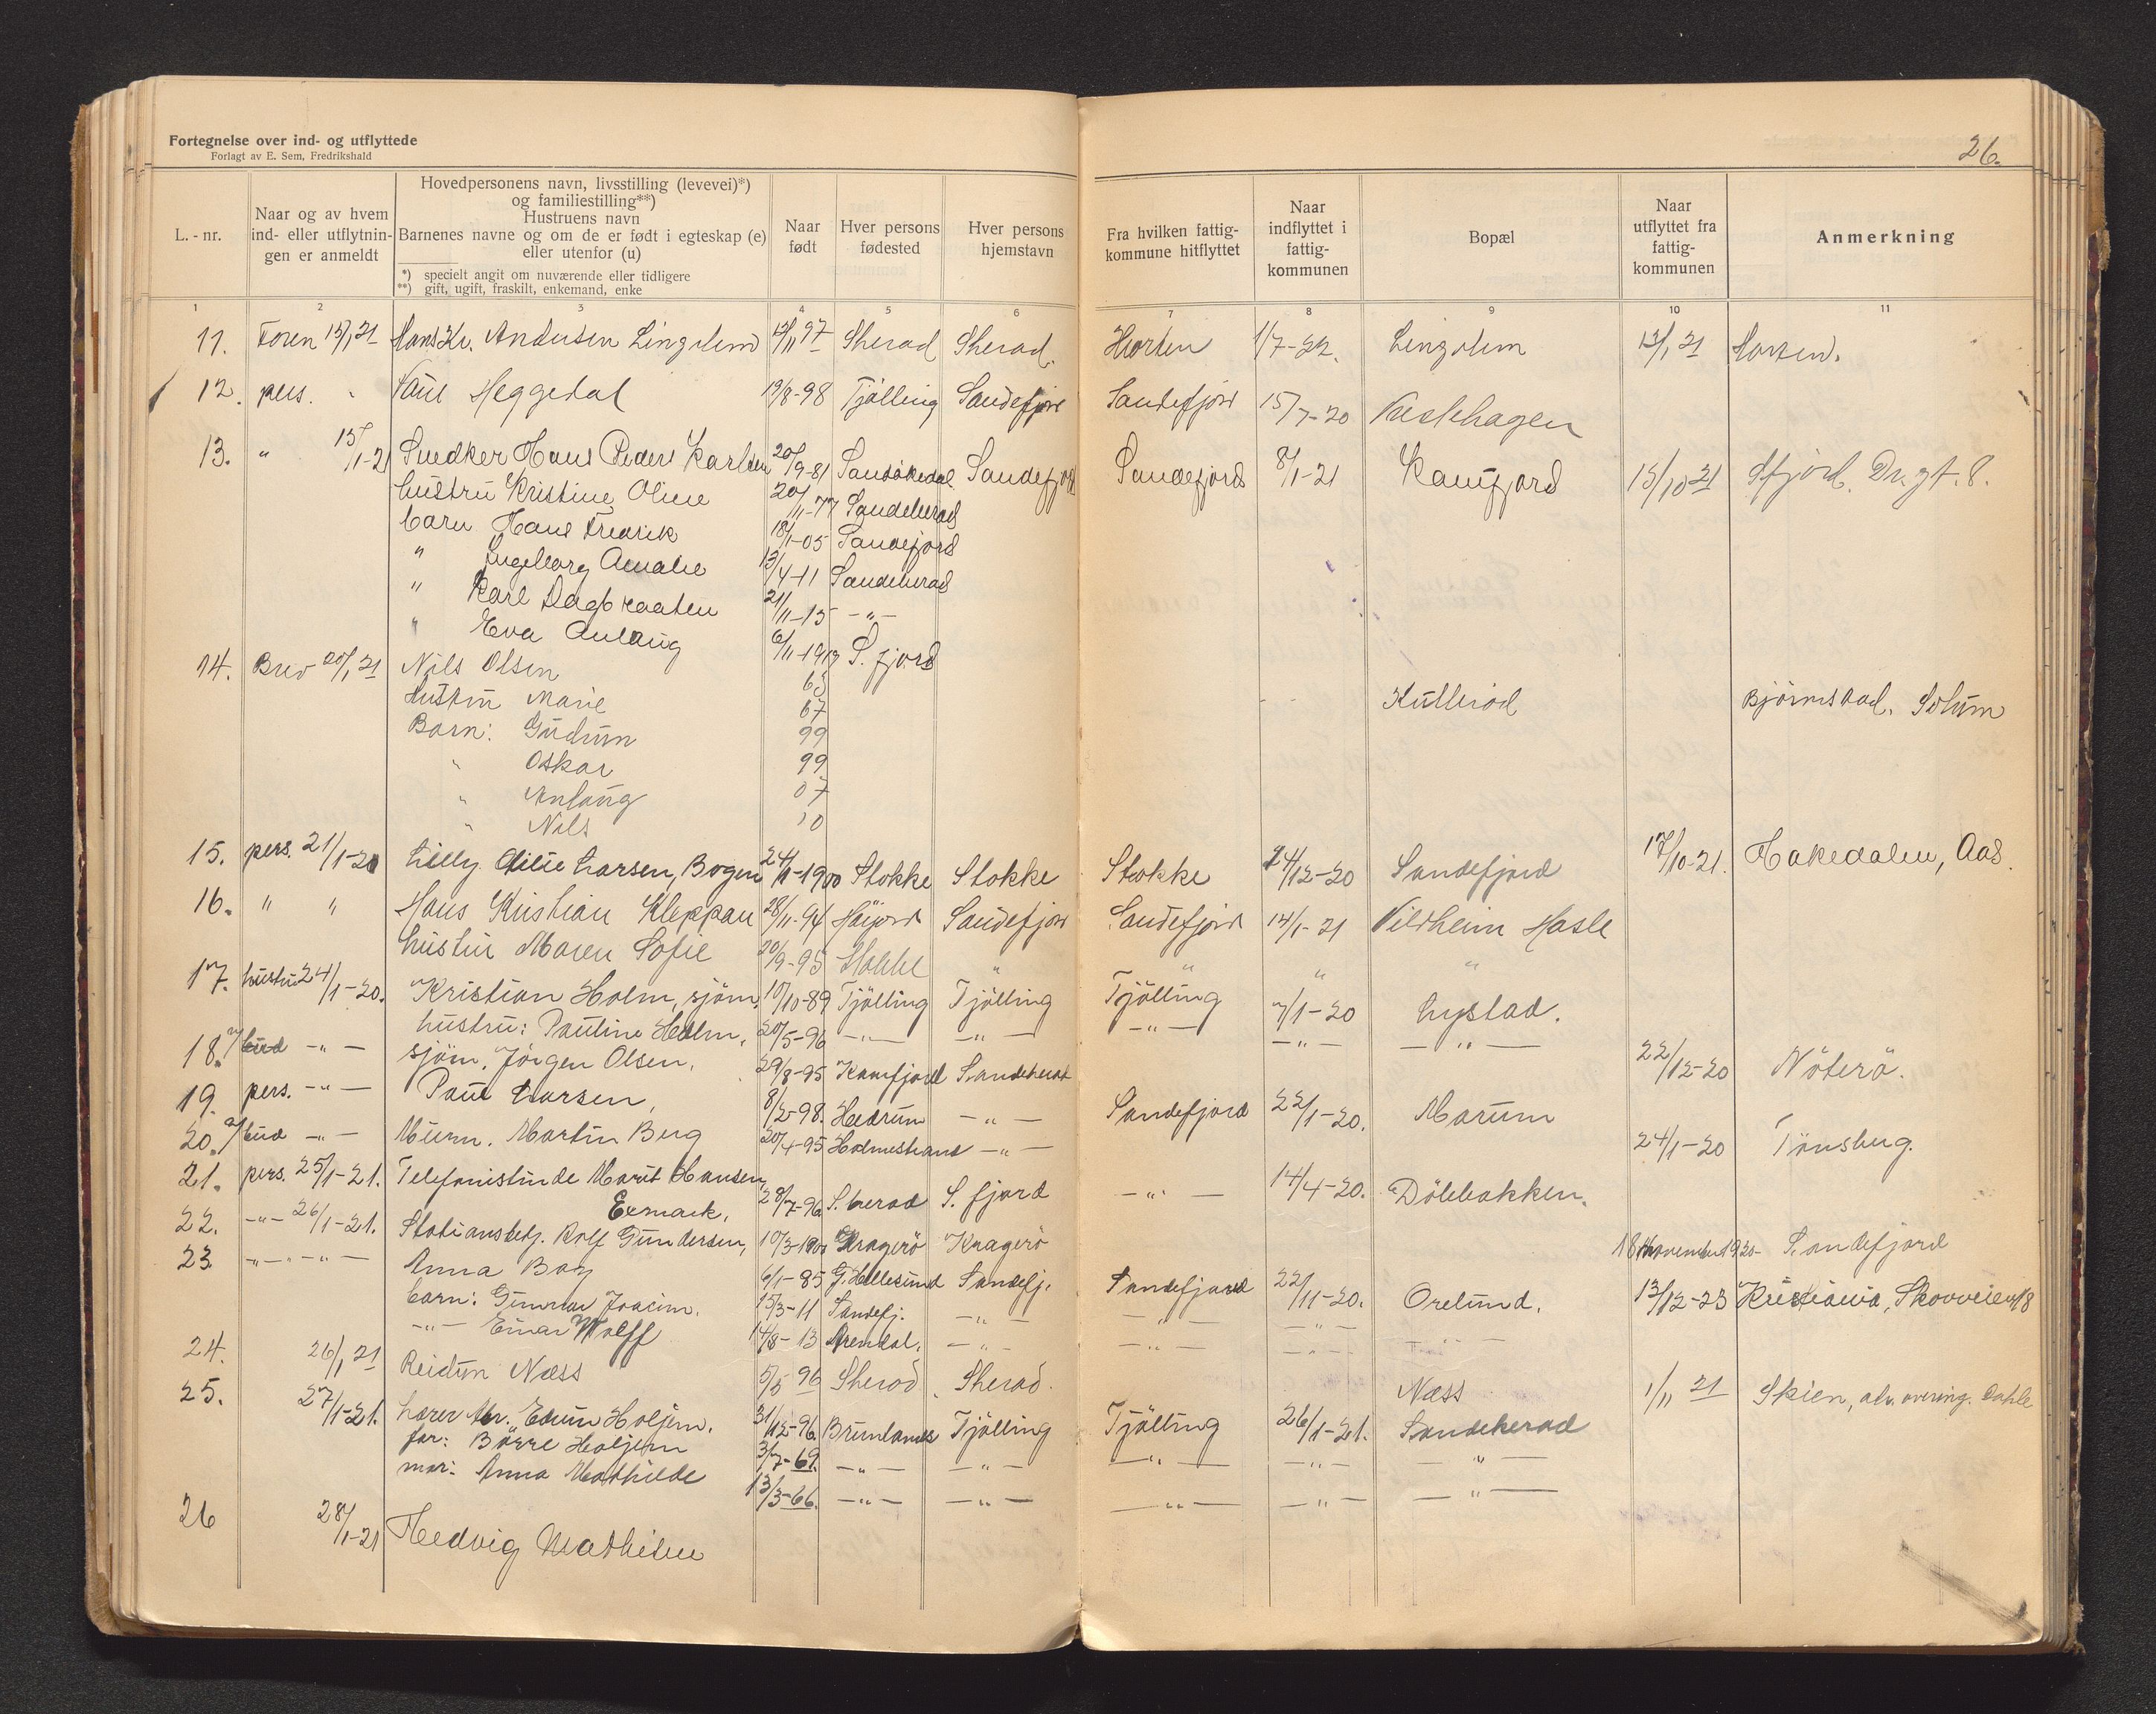 Fortegnelse over ind- og utflyttede
Forlagt av E. Sem, Fredrikshald
26.
L.-nr.
Naar og av hvem ind- eller utflytningen er anmeldt
Hovedpersonens navn, livsstilling (levevei)*)
og familiestilling**)
Hustruens navn
Barnenes navne og om de er født i egteskap (e)
eller utenfor (u)
*) specielt angit om nuværende eller tidligere
**) gift, ugift, fraskilt, enkemand, enke
Naar født
Hver persons fødested
Hver persons hjemstavn
Fra hvilken fattigkommune hitflyttet
Naar indflyttet i fattigkommunen
Bopæl
Naar utflyttet fra fattigkommunen
Anmerkning
1 2 3 4 5 6 7 8 9 10 11
11. 15/1 21 Hans Kr. Andersen 97 Sherad Sherad. Horten 1/7-22. 21
12. pers. " Heggedal 19/8-98 Tjölling Sandefjord Sandefjord 15/7-20
13. " 15/1-21 Snedker Hans Peder Karlsen 20/9-81 Sandefjord Sandefjord 8/1-21 Kamfjord 15/10-21 Sfjord. Dr.gt. 8.
hustru Kristine Oline 20/11-77 Sandeherad
barn Hans Fredrik 18/1-05 Sandefjord
" Ingeborg Amalie 13/4-11 Sandeherad
" Karl Dagb 21/11-15 -"-
" Eva Anlaug 6/11-1917 S. fjord
14. Brev 20/1 21 Nils Olsen 63
Hustru Marie 67 Kullerød Solum
Barn: Gudrun 99
" Oskar 99
" Anlaug 07
" Nils 10
15. pers. 21/1-20 Lilly Larsen, Bogen 24/11-1900 Stokke Stokke Stokke 24/12-20 Sandefjord 17/10-21. Hakedalen, Aas.
16. " " Hans Kristian Kleppan 28/11-94 Sandefjord Sandefjord 14/1-21 Hasle
hustru Maren Sofie 20/9-95 " " " "
17. hustru 24/1-20. Kristian Holm, sjöm. 10/10-89 Tjölling Tjölling Tjölling 7/1-20 Lystad.
hustru: Pauline Holm, 20/5-96 -"- -"- -"- -"- -"-
18. bud -"- sjöm. Jörgen Olsen. 29/8-95 Kamfjord Sandeherad 22/12-20 Nöterö.
19. pers. -"- Paul Larsen, 8/2-98. Hedrum -"- Sandefjord 22/1-20. Marum
20. bud -"- Murm. Martin Berg 20/4-95 Holmestrand -"- 24/1-20 Tönsberg.
21. pers. 25/1-21. Telefonistinde Marit Hansen
Exmark, 28/7-96 S.herad S. fjord -"- 14/4-20. Dölebakken.
22. -"- 26/1-21. Stationsbetj. Rolf Gundersen, 10/3-1900 Kragerö Kragerö 18 november 1920 Sandefjord
23 -"- -"- Anna Bay 6/1-85 G. Hellesund Sandefj. Sandefjord 22/11-20. Orelund. 13/12-23 Kristiania, Skovveien 18
barn: Gunnar Joacim. 15/3-11 Sandefj. -"- -"- -"-
-"- Einar Wolff 14/8-13 Arendal. -"- -"- -"- -"-
24. 26/1 21 Reidun Næss 5/5 96 Sherad. Sherad. Næss 1/11 21 Skien, Dahle
25. 27/1-21. Lærer Edvin Holjem. 31/12-96. Brunlanes Tjölling Tjölling 26/1-21. Sandeherad
far: Börre Holjem 3/7-69. -"- -"- -"- -"- -"-
mor: Anna Mathilde 13/3-66. -"- -"- -"- -"- -"-
26 28/1-21 Hedvig